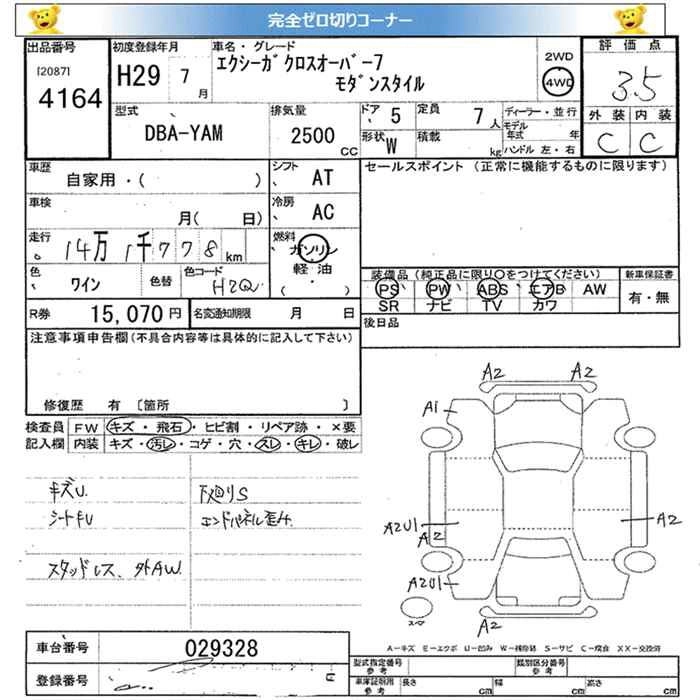 完全ゼロ切りコーナー
出品番号
[2087]
4164
初度登録年月
H29 7月
車名・グレード
エクシーガクロスオーバー7
モダンスタイル
2WD
4WD
評価点
3.5
外装 内装
C C
型式
DBA-YAM
排気量
2500 CC
ドア 5
形状 W
定員 7人
積載 kg
ディーラー・並行
モデル年式 年
ハンドル 左・右
車歴
自家用・( )
シフト
AT
セールスポイント (正常に機能するものに限ります)
車検
月( 日)
冷房
AC
走行
14万1千778km
燃料
ガソリン
軽油
( ・ )
色
ワイン
色替
色コード
H2Q
装備品 (純正品に限り○をつけてください)
PS PW ABS エアB AW
SR ナビ TV カワ
新車保証書
有・無
R券 15,070円
名変通知期限 月 日
後日品
注意事項申告欄(不具合内容等は具体的に記入して下さい)
修復歴 有 [箇所 ]
検査員記入欄
FW キズ・飛石・ヒビ割・リペア跡・×要
内装 キズ・汚レ・コゲ・穴・スレ・キレ・破レ
キズU.
シートキU
スタッドレス、外AW.
下廻りS
エンドパネル歪み.
A2 A2
A1
A2U1
A2
A2
A2U1
A2
A-キズ E-エクボ U-凹み W-補修跡 S-サビ C-腐食 XX-交換済
車台番号 029328
登録番号
型式指定番号 参考
類別区分番号 参考
車庫証明用 参考
長さ cm
幅 cm
高さ cm